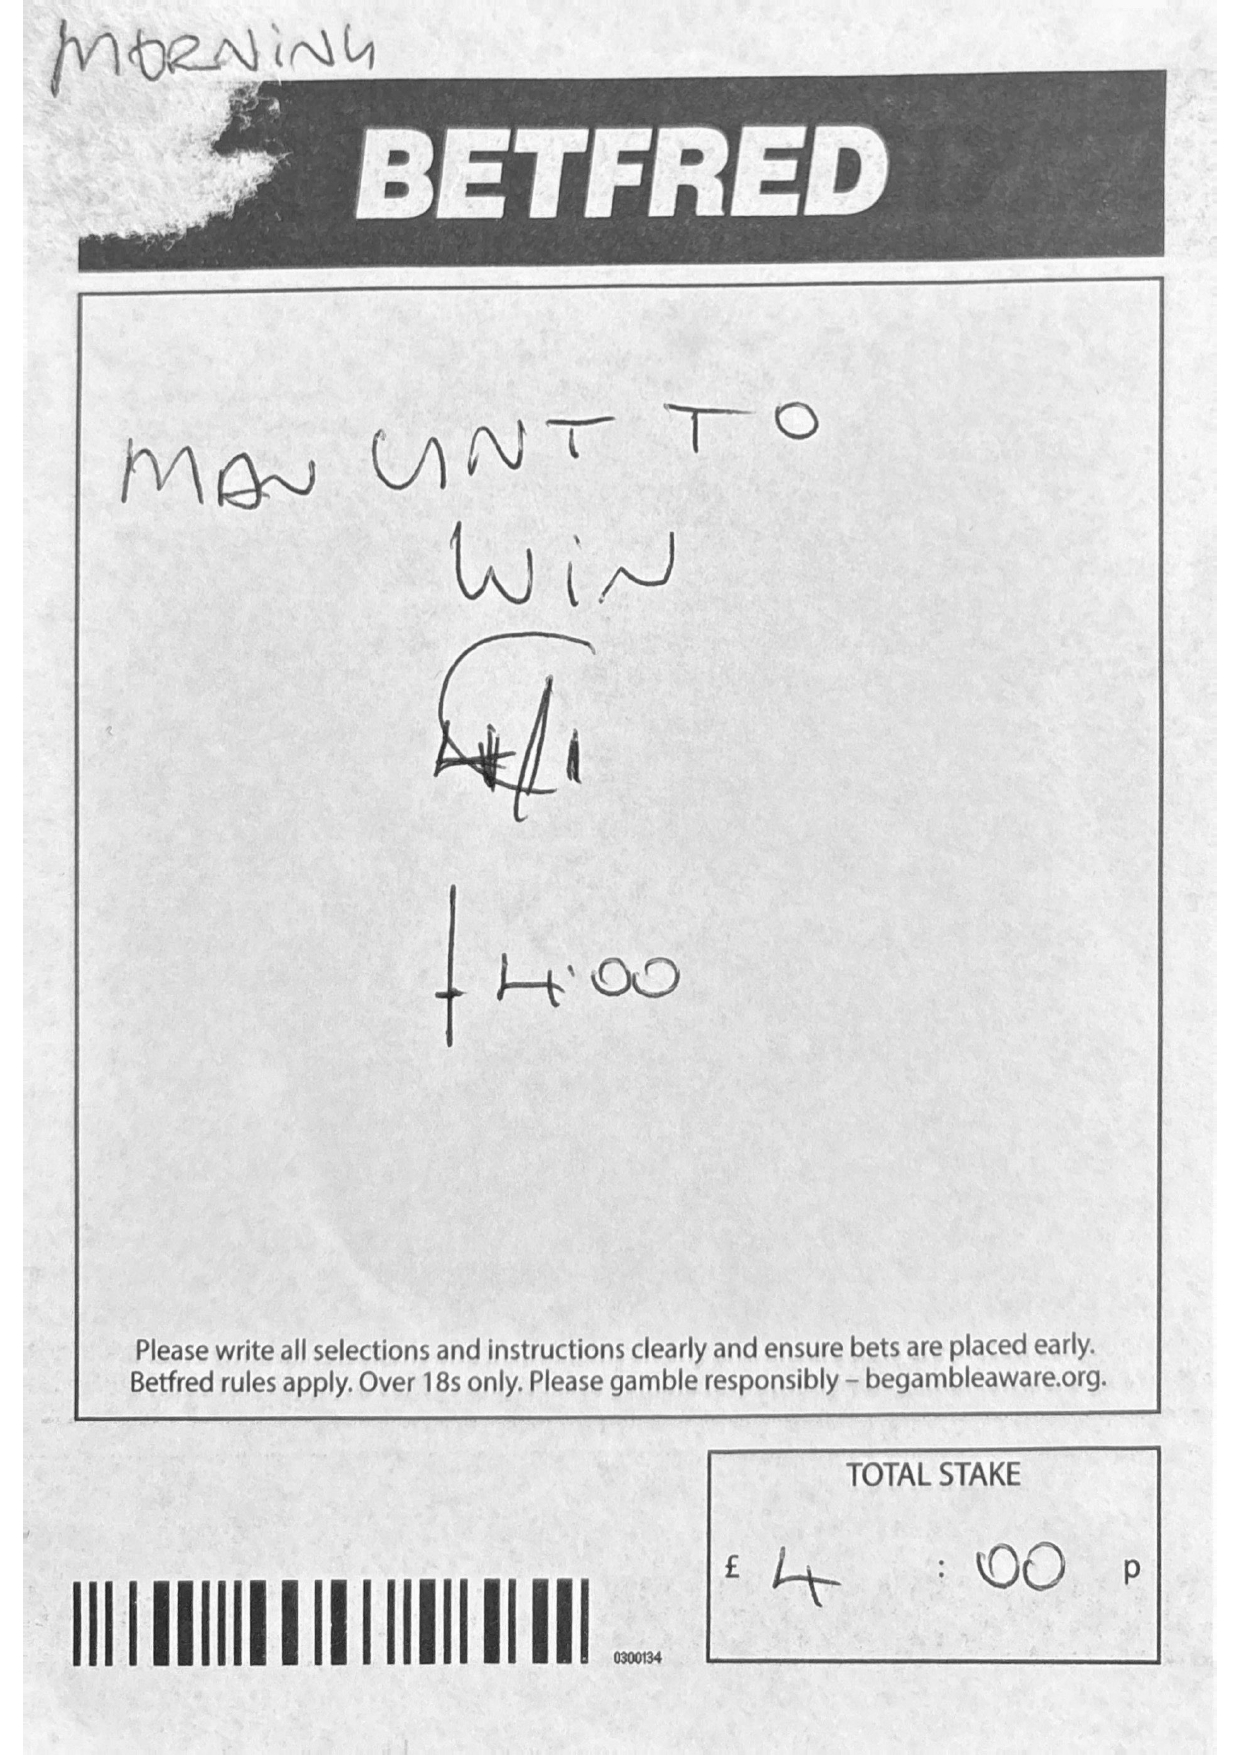 MORNING
BETFRED
MAN UNT TO
WIN
/1
£4.00
Please write all selections and instructions clearly and ensure bets are placed early.
Betfred rules apply. Over 18s only. Please gamble responsibly – begambleaware.org.
TOTAL STAKE
£ 4 : 00 p
0300134